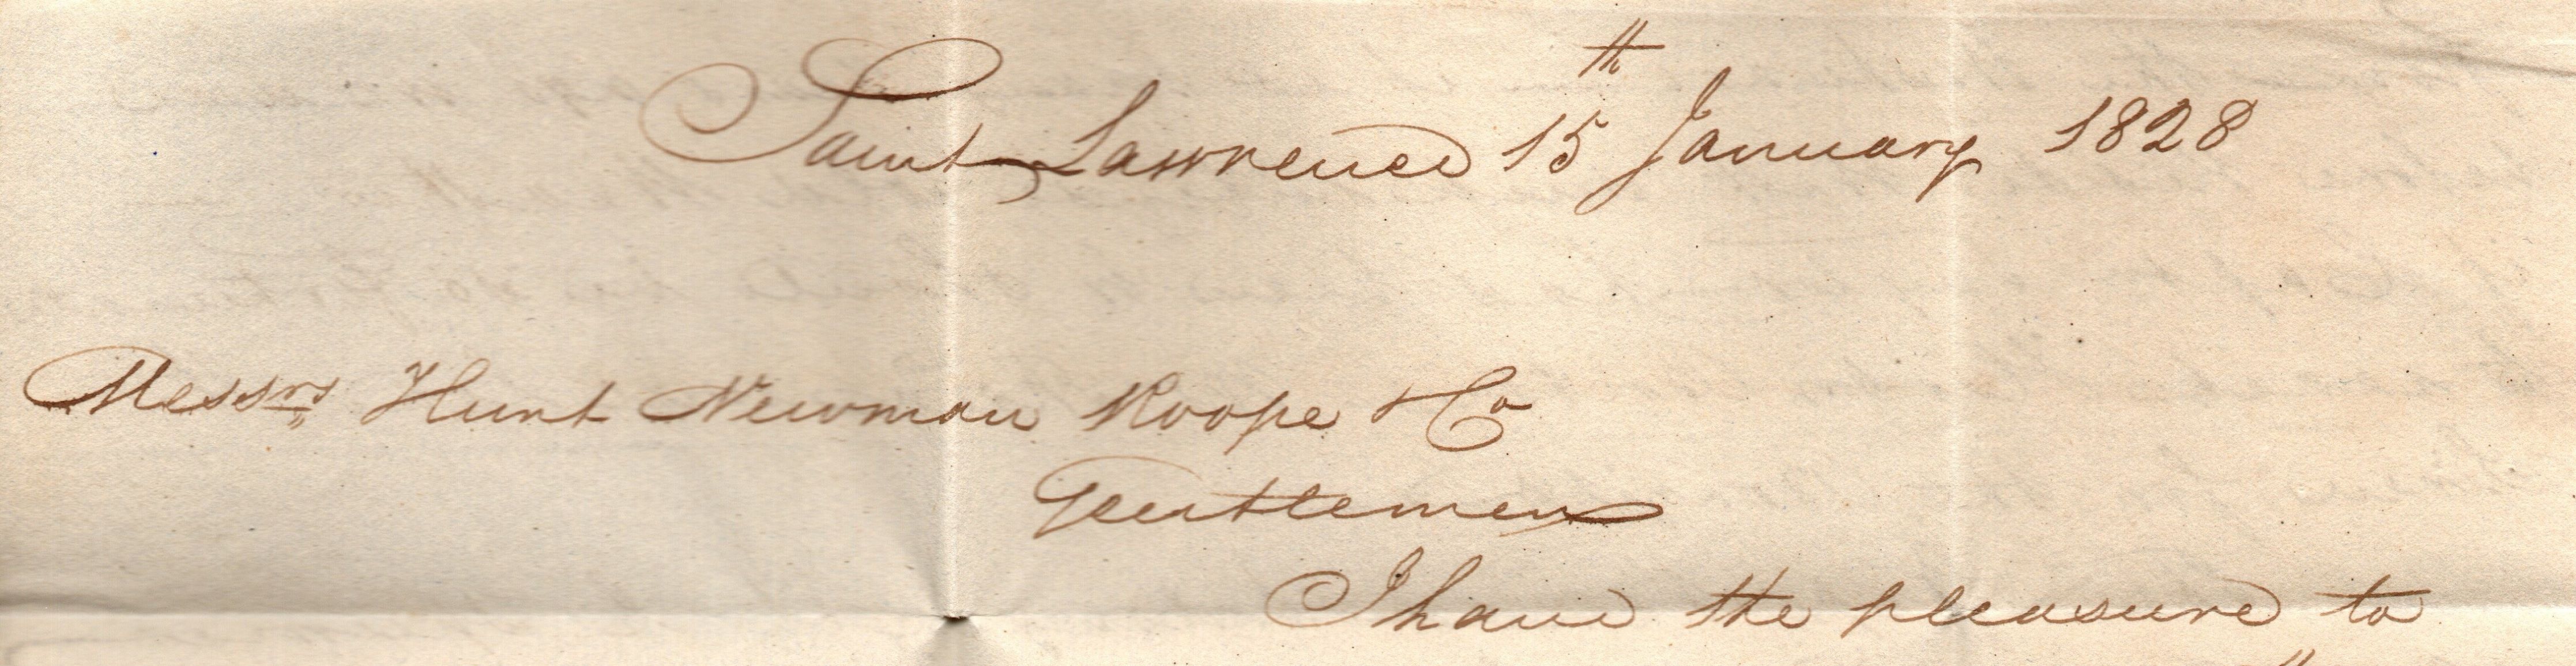 Saint Lawrence 15th January 1828
Messrs Hunt Newman Roope & Co
Gentlemen
I have the pleasure to